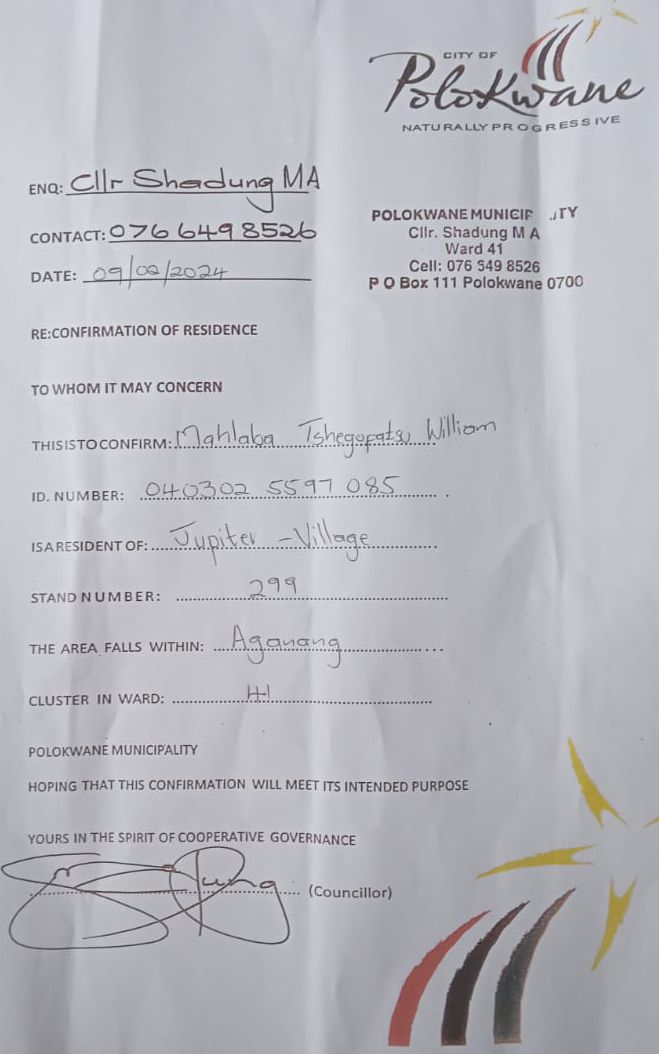 CITY OF
PoloKwane
NATURALLY PROGRESSIVE
ENQ: Cllr Shadung MA
CONTACT: 076 649 8526
DATE: 09/02/2024
POLOKWANE MUNICIP ITY
Cllr. Shadung M A
Ward 41
Cell: 076 649 8526
P O Box 111 Polokwane 0700
RE:CONFIRMATION OF RESIDENCE
TO WHOM IT MAY CONCERN
THIS IS TO CONFIRM: Mahlaba Tshegofatso William
ID. NUMBER: 040302 5597 085
IS A RESIDENT OF: Jupiter - Village
STAND NUMBER: 299
THE AREA FALLS WITHIN: Aganang
CLUSTER IN WARD: 41
POLOKWANE MUNICIPALITY
HOPING THAT THIS CONFIRMATION WILL MEET ITS INTENDED PURPOSE
YOURS IN THE SPIRIT OF COOPERATIVE GOVERNANCE
(Councillor)